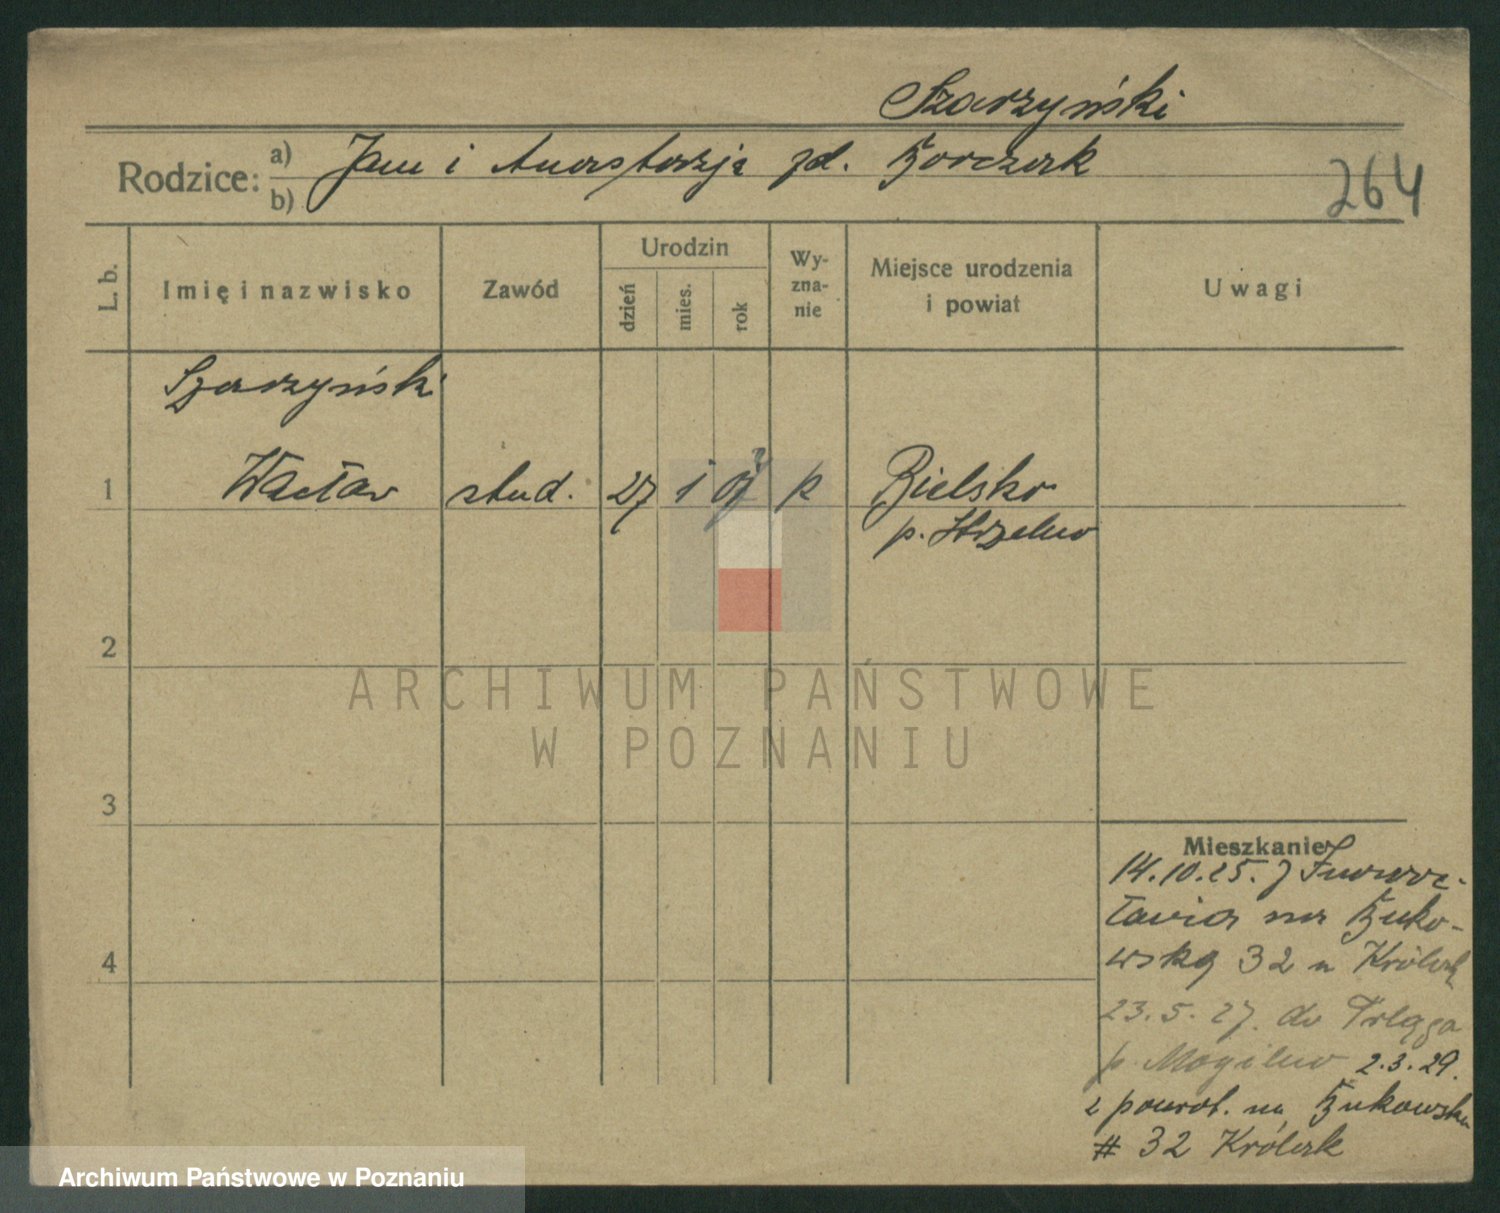 Szarzyński
Rodzice: a) Jan i Anastazja zd. Borczak
b)
264
L. b.
Imię i nazwisko
Zawód
Urodzin
dzień
mies.
rok
Wy-
zna-
nie
Miejsce urodzenia
i powiat
Uwagi
Szarzyński
1 Wacław stud. 27 1 k Bielsko
p. Strzelno
2
3
4
Mieszkanie
14.10.25. z Inowroc-
ławia na Buko-
wską 32 u Królak
23.5.27. do Trląga
p. Mogilno 2.3.29.
z powrot. na Bukowska
# 32 Królak
ARCHIWUM PAŃSTWOWE
W POZNANIU
Archiwum Państwowe w Poznaniu